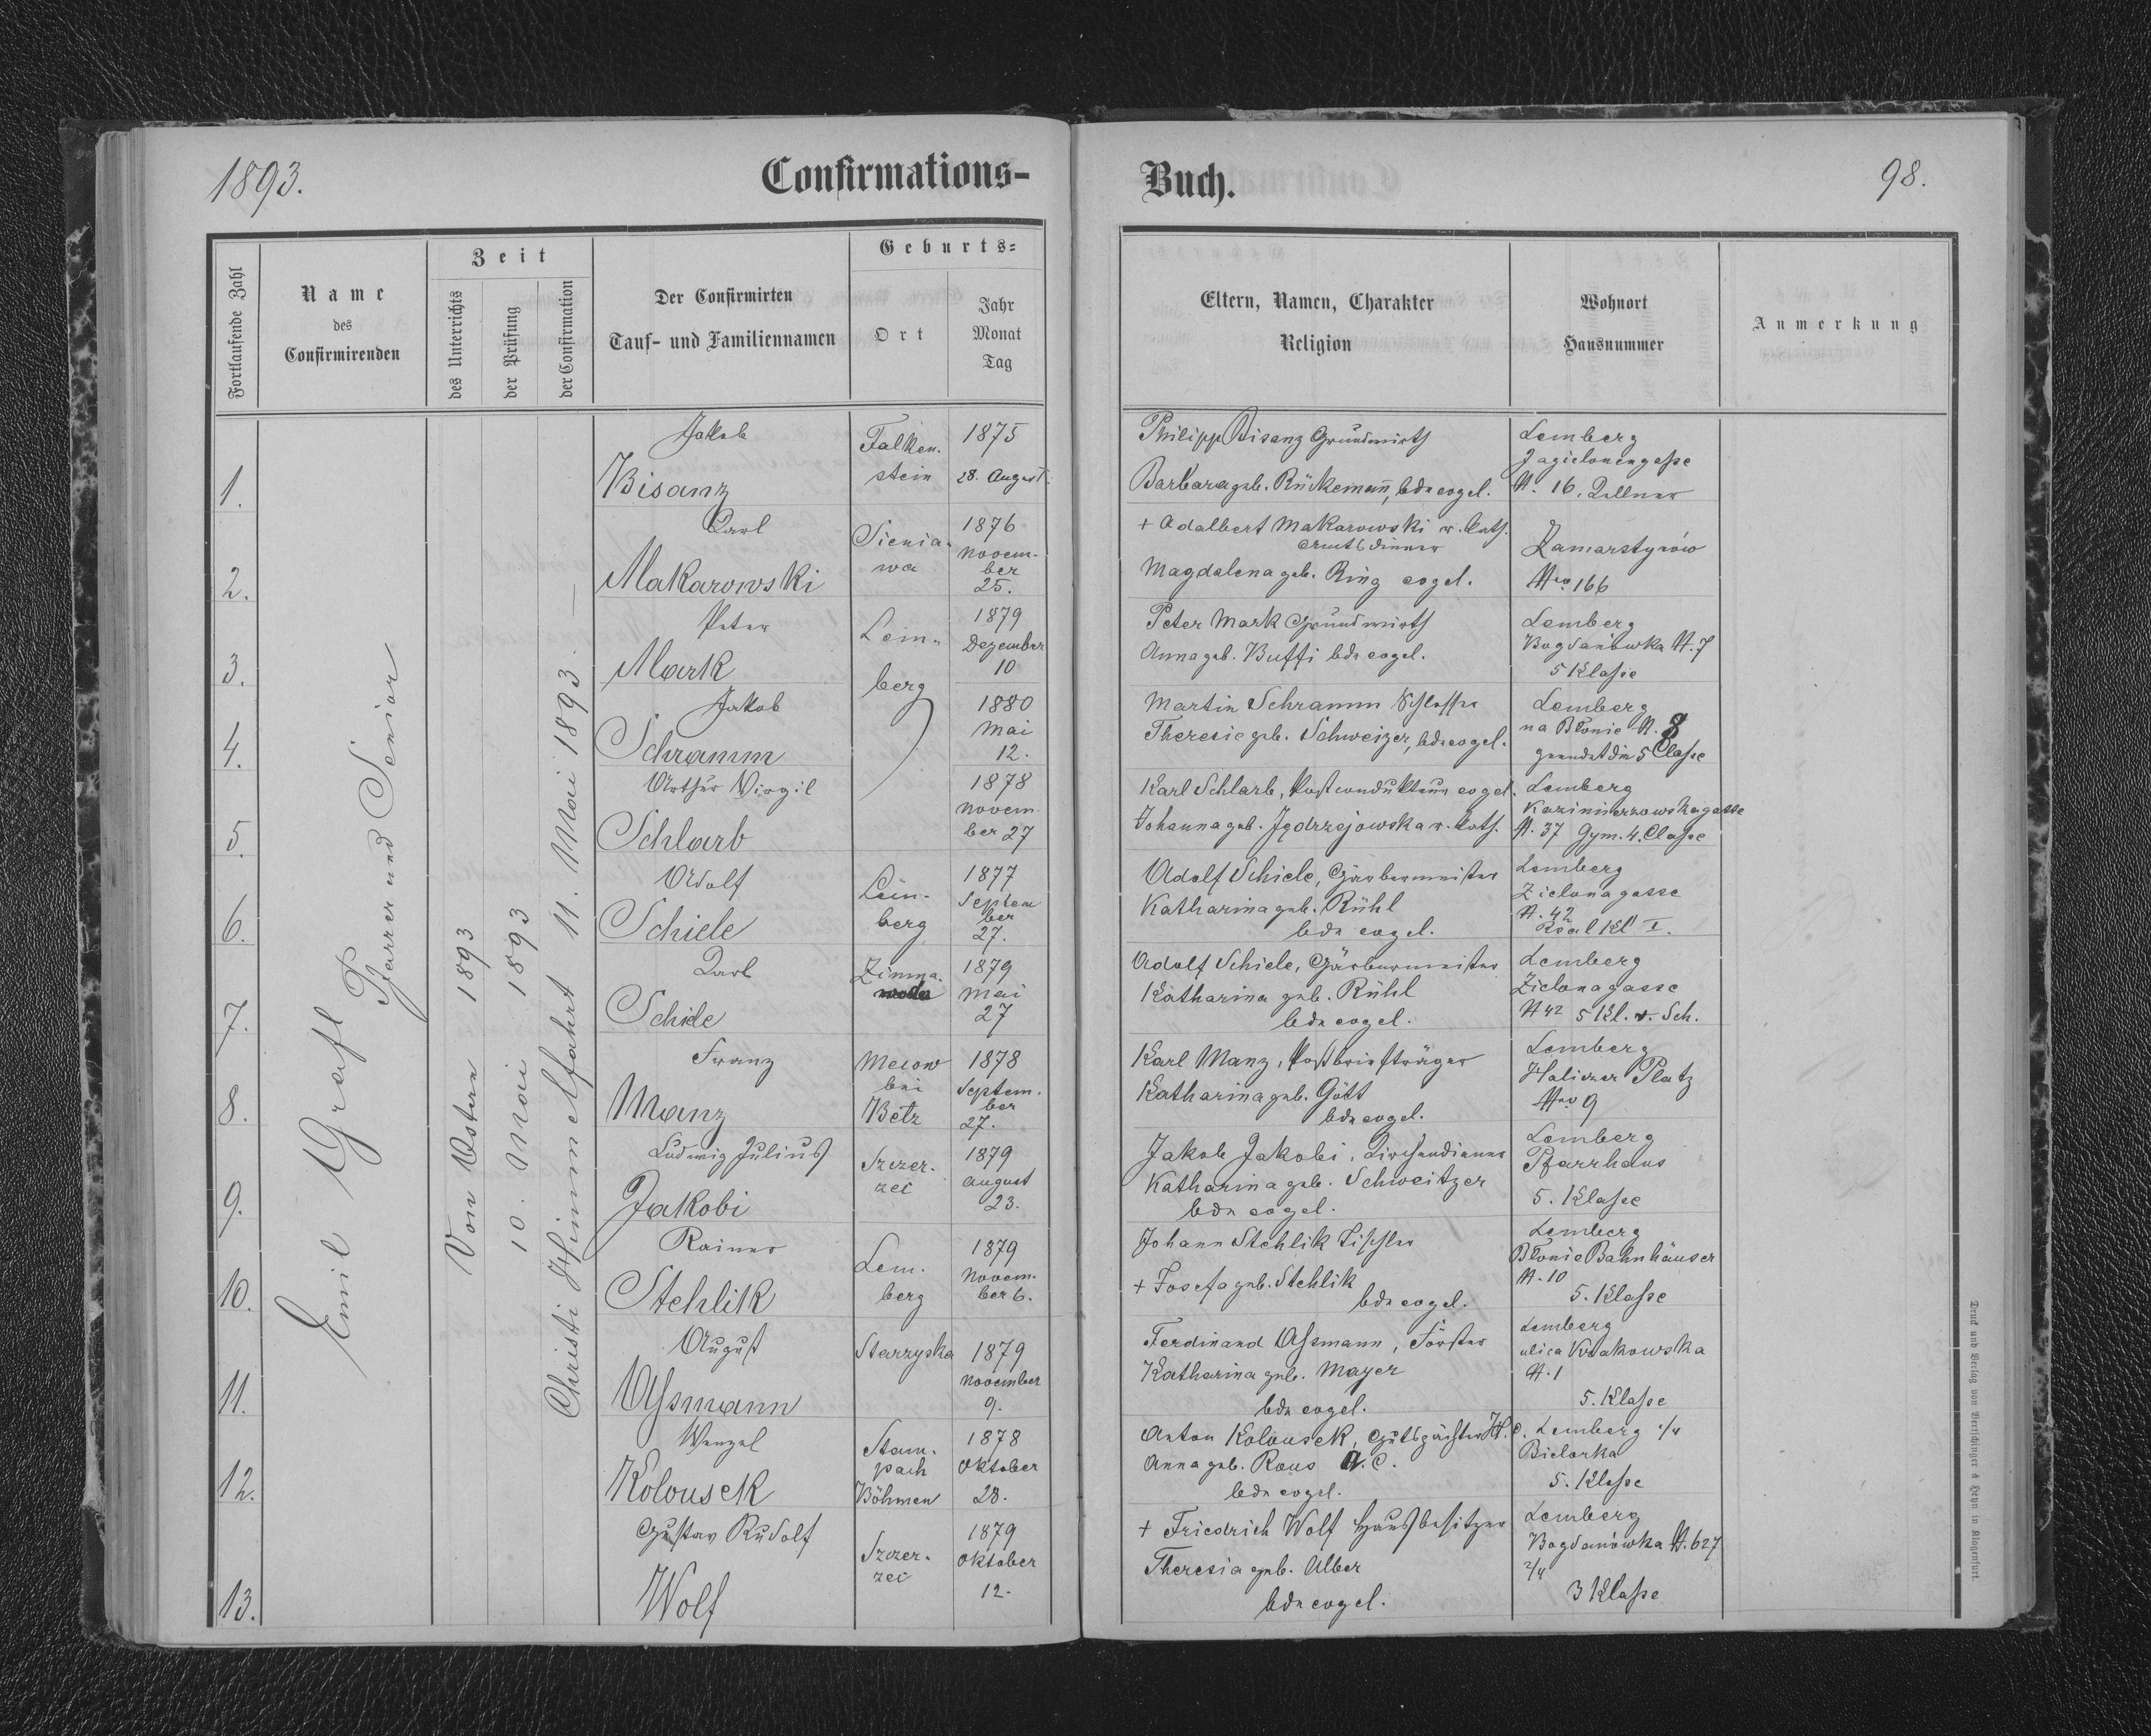 1893.
Confirmations-
Buch.
98.
Fortlaufende Zahl
Name
des
Confirmirenden
Zeit
des Unterrichts
der Prüfung
der Confirmation
Der Confirmirten
Tauf- und Familiennamen
Geburts=
Ort
Jahr
Monat
Tag
Eltern, Namen, Charakter
Religion
Wohnort
Hausnummer
Anmerkung
Emil Grafl
Pfarrer und Senior
Von Ostern 1893
10. Mai 1893
Christi Himmelfahrt 11. Mai 1893.
1.
Jakob
Bisanz
Falken-
stein
1875
28. August.
Philipp Bisanz Grundwirth
Barbara geb. Rückemañ, bde evgel.
Lemberg
Jagielonengasse
N. 16.
2.
Carl
Makarowski
Sienia-
wa
1876
Novem-
ber
25.
+ Adalbert Makarowski r. kath.
Amtsdiener
Magdalena geb. Ring evgel.
Zamarstynów
Nro. 166
3.
Peter
Mark
Lem-
berg
1879
Dezember
10
Peter Mark Grundwirth
Anna geb. Buffi bde evgel.
Lemberg
Bogdanówka N. 7
5 Klasse
4.
Jakob
Schramm
1880
Mai
12.
Martin Schramm Schlosser
Theresie geb. Schweizer, bde evgel.
Lemberg
na Błonie N. 8
5 Classe
5.
Arthur Virgil
Schlarb
1878
Novem-
ber 27
Karl Schlarb, Postcondukteur evgel.
Johanna geb. Jędrzejowska r. kath.
Lemberg
Kazimierzowskagasse
N. 37 Gym. 4. Classe
6.
Adolf
Schiele
Lem-
berg
1877
Septem
ber
27.
Adolf Schiele, Gärbermeister
Katharina geb. Rühl
bde evgel.
Lemberg
Zielonagasse
N. 42
Real Kl I.
7.
Carl
Schiele
Zimna-
woda
1879
Mai
27
Adolf Schiele, Gärbermeister
Katharina geb. Rühl
bde evgel.
Lemberg
Zielonagasse
N 42 5 Kl. v. Sch.
8.
Franz
Manz
bei
Betz
1878
Septem.
ber
27.
Karl Manz, Postbriefträger
Katharina geb. Gött
bde evgel.
Lemberg
Haliczer Platz
Nro 9
9.
Ludwig Julius
Jakobi
Szczer-
zec
1879
August
23.
Jakob Jakobi, Kirchendiener
Katharina geb. Schweitzer
bde evgel.
Lemberg
Pfarrhaus
5. Klasse
10.
Rainer
Stehlik
Lem-
berg
1879
Novem-
ber 6.
Johann Stehlik Tischler
+ Josefa geb. Stehlik
bde evgel.
Lemberg
Błonie Bahnhäuser
N. 10
5. Klasse
11.
August
Assmann
Starzyska
1879
November
9.
Ferdinand Assmann, Förster
Katharina geb. Mayer
bde evgel.
Lemberg
ulica Krakowska
N. 1
5. Klasse
12.
Wenzel
Kolousek
Stam-
pach
Böhmen
1878
Oktober
28.
Anton Kolousek, Gutspächter H. C.
Anna geb. Rous A. C.
bde evgel.
Lemberg 1/4
Bielorka
5. Klasse
13.
Gustav Rudolf
Wolf
Szczer-
zec
1879
Oktober
12.
+ Friedrich Wolf Hausbesitzer
Theresia geb. Ulber
bde evgel.
Lemberg
Bogdanówka N. 627
2/4
3 Klasse
Druck und Verlag von Bertschinger & Heyn in Klagenfurt.